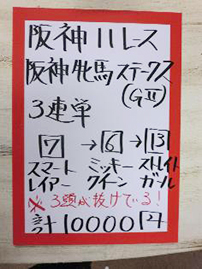 阪神11レース
阪神牝馬ステークス
(GⅡ)
3連単
7→6→13
スマート ミッキー ストレイト
レイアー クイーン ガール
※3頭が抜けている!
計10000円